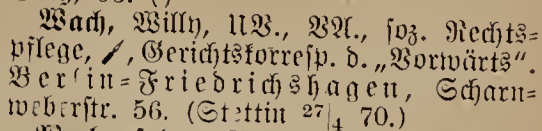 Wach, Willy, UV., VA., soz. Rechts=
pflege, Gerichtskorresp. d. „Vorwärts“.
Berlin=Friedrichshagen, Scharn=
weberstr. 56. (Stettin 27/4 70.)